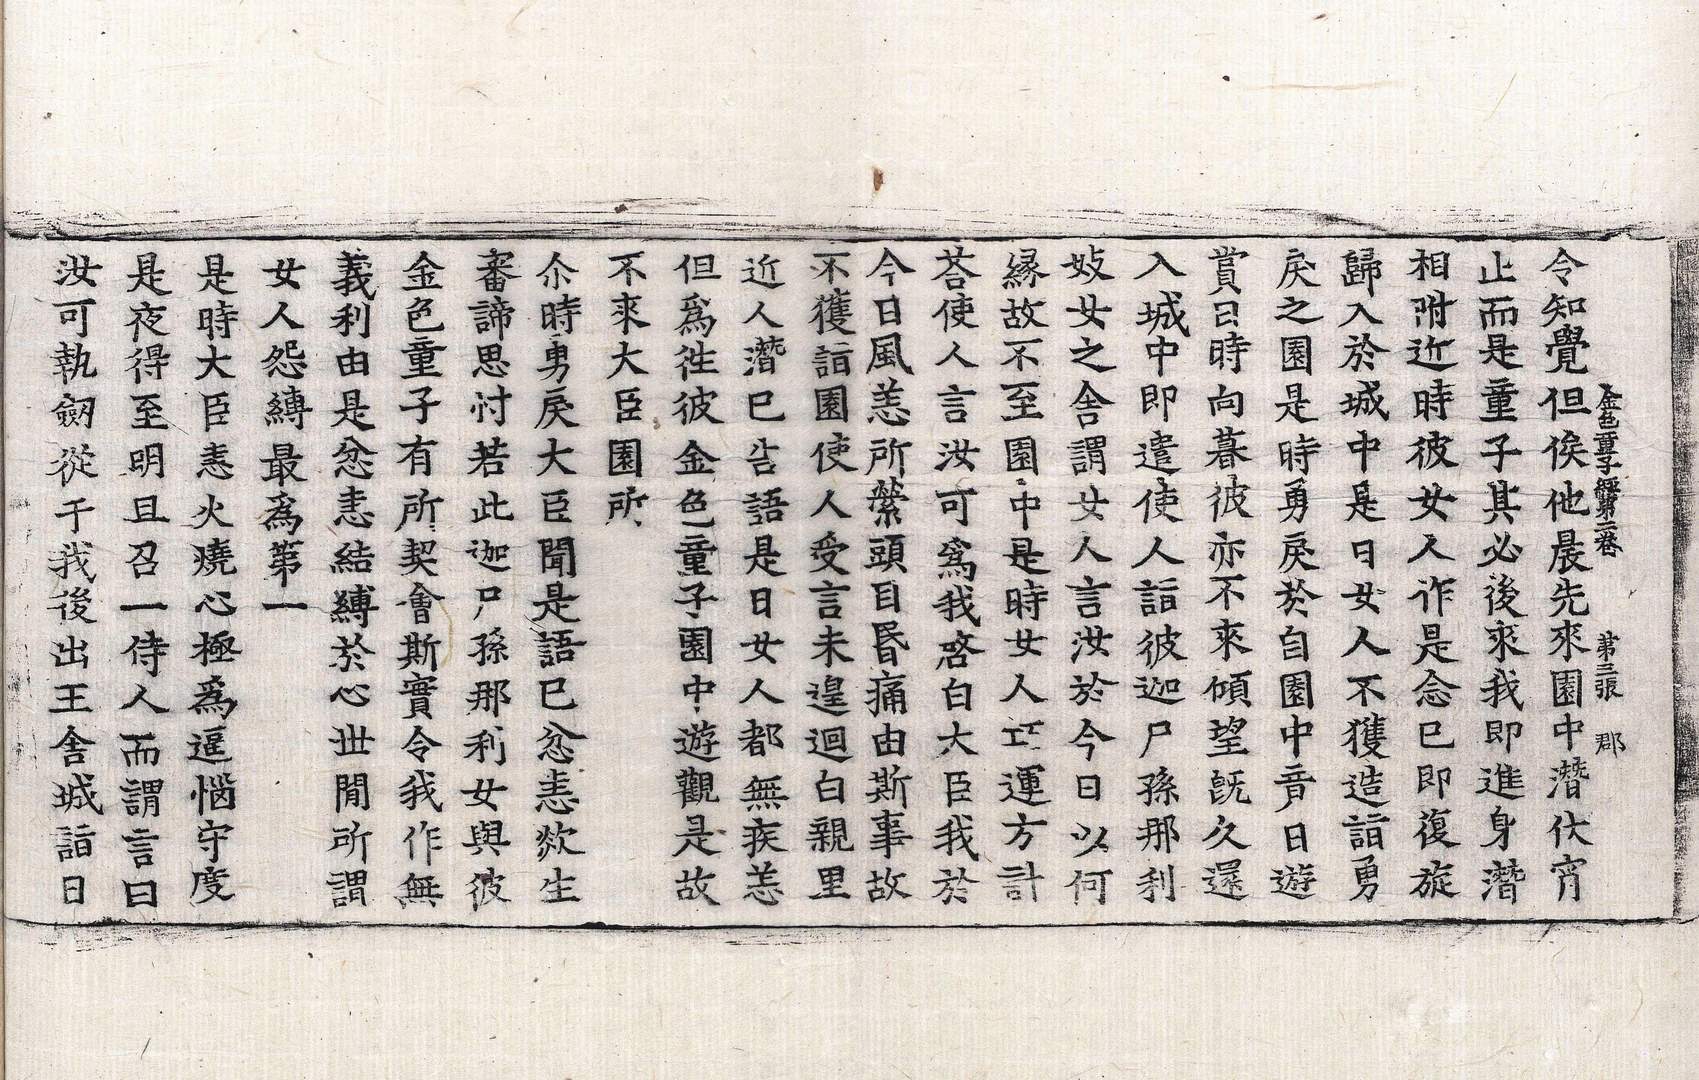 金色童子經第二卷　第三張　郡
令知覺但俟他晨先來園中潛伏窅
止而是童子其必後來我即進身潛
相附近時彼女人作是念已即復旋
歸入於城中是日女人不獲造詣勇
戾之園是時勇戾於自園中竟日遊
賞日時向暮彼亦不來傾望旣久還
入城中即遣使人詣彼迦尸孫那利
妓女之舍謂女人言汝於今日以何
緣故不至園中是時女人巧運方計
荅使人言汝可爲我啓白大臣我於
今日風恙所縈頭目昬痛由斯事故
不獲詣園使人受言未遑迴白親里
近人潛已告語是日女人都無疾恙
但爲徃彼金色童子園中遊觀是故
不來大臣園所
尒時勇戾大臣聞是語已忿恚欻生
審諦思忖若此迦尸孫那利女與彼
金色童子有所契會斯實令我作無
義利由是忿恚結縛於心世閒所謂
女人怨縛最爲第一
是時大臣恚火燒心極爲逼惱守度
是夜得至明旦召一侍人而謂言曰
汝可執劒從于我後出王舍城詣日